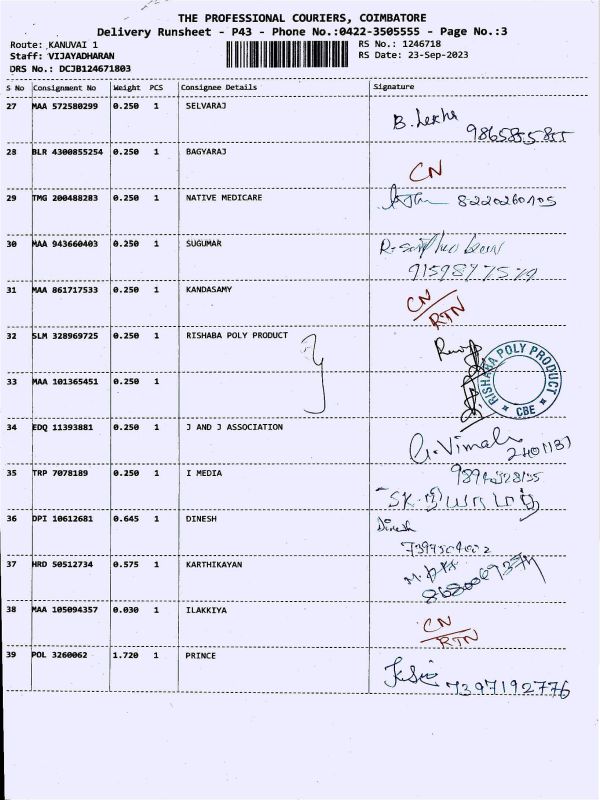 THE PROFESSIONAL COURIERS, COIMBATORE
Delivery Runsheet - P43 - Phone No.:0422-3505555 - Page No.:3
Route: KANUVAI 1 RS No.: 1246718
Staff: VIJAYADHARAN RS Date: 23-Sep-2023
DRS No.: DCJB124671803
S No Consignment No Weight PCS Consignee Details Signature
27 MAA 572580299 0.250 1 SELVARAJ B. Lekha
9865855855
28 BLR 4300855254 0.250 1 BAGYARAJ CN
29 TMG 200488283 0.250 1 NATIVE MEDICARE 8220260105
30 MAA 943660403 0.250 1 SUGUMAR
31 MAA 861717533 0.250 1 KANDASAMY CN
RTN
32 SLM 328969725 0.250 1 RISHABA POLY PRODUCT
RISHABA POLY PRODUCT
CBE
33 MAA 101365451 0.250 1
34 EDQ 11393881 0.250 1 J AND J ASSOCIATION G. Vimal
35 TRP 7078189 0.250 1 I MEDIA
36 DPI 10612681 0.645 1 DINESH Dinesh
37 HRD 50512734 0.575 1 KARTHIKAYAN
38 MAA 105094357 0.030 1 ILAKKIYA CN
RTN
39 POL 3260062 1.720 1 PRINCE
7397192776